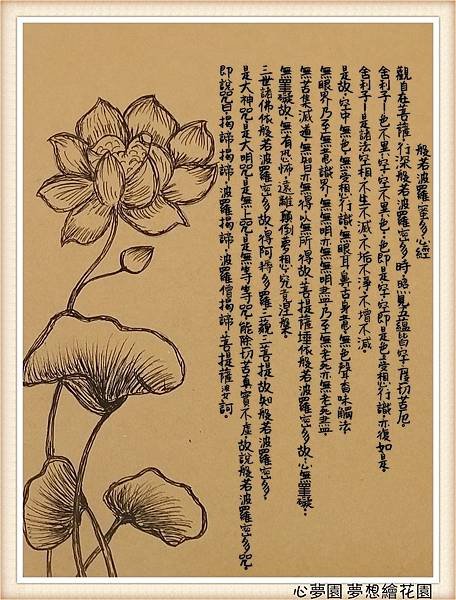 般若波羅蜜多心經
觀自在菩薩,行深般若波羅蜜多時,照見五蘊皆空,度一切苦厄。
舍利子!色不異空,空不異色,色即是空,空即是色,受想行識,亦復如是。
舍利子!是諸法空相,不生不滅,不垢不淨,不增不減。
是故,空中無色,無受想行識,無眼耳鼻舌身意,無色聲香味觸法
無眼界,乃至無意識界,無無明,亦無無明盡,乃至無老死,亦無老死盡。
無苦集滅道,無智亦無得,以無所得故,菩提薩埵,依般若波羅蜜多故,心無罣礙。
無罣礙故,無有恐怖,遠離顛倒夢想,究竟涅槃。
三世諸佛,依般若波羅蜜多故,得阿耨多羅三藐三菩提,故知般若波羅蜜多,
是大神咒,是大明咒,是無上咒,是無等等咒,能除一切苦,真實不虛,故說般若波羅蜜多咒。
即說咒曰,揭諦,揭諦,波羅揭諦,波羅僧揭諦,菩提薩婆訶。
心夢園 夢想繪花園